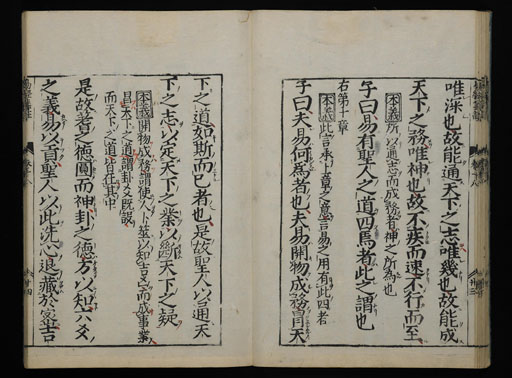 唯深也故能通天下之志唯幾也故能成
天下之務唯神也故不疾而速不行而至
本義所以通志而成務者神之所為也
子曰易有聖人之道四焉者此之謂也
本義此言承上章之意言易之用有此四者
右第十章
子曰夫易何為者也夫易開物成務冒天
下之道如斯而已者也是故聖人以通天
下之志以定天下之業以斷天下之疑
本義開物成務謂使人卜筮以知吉凶而成事業
冒天下之道謂卦爻既設
而天下之道皆在其中
是故蓍之德圓而神卦之德方以知六爻
之義易以貢聖人以此洗心退藏於密吉